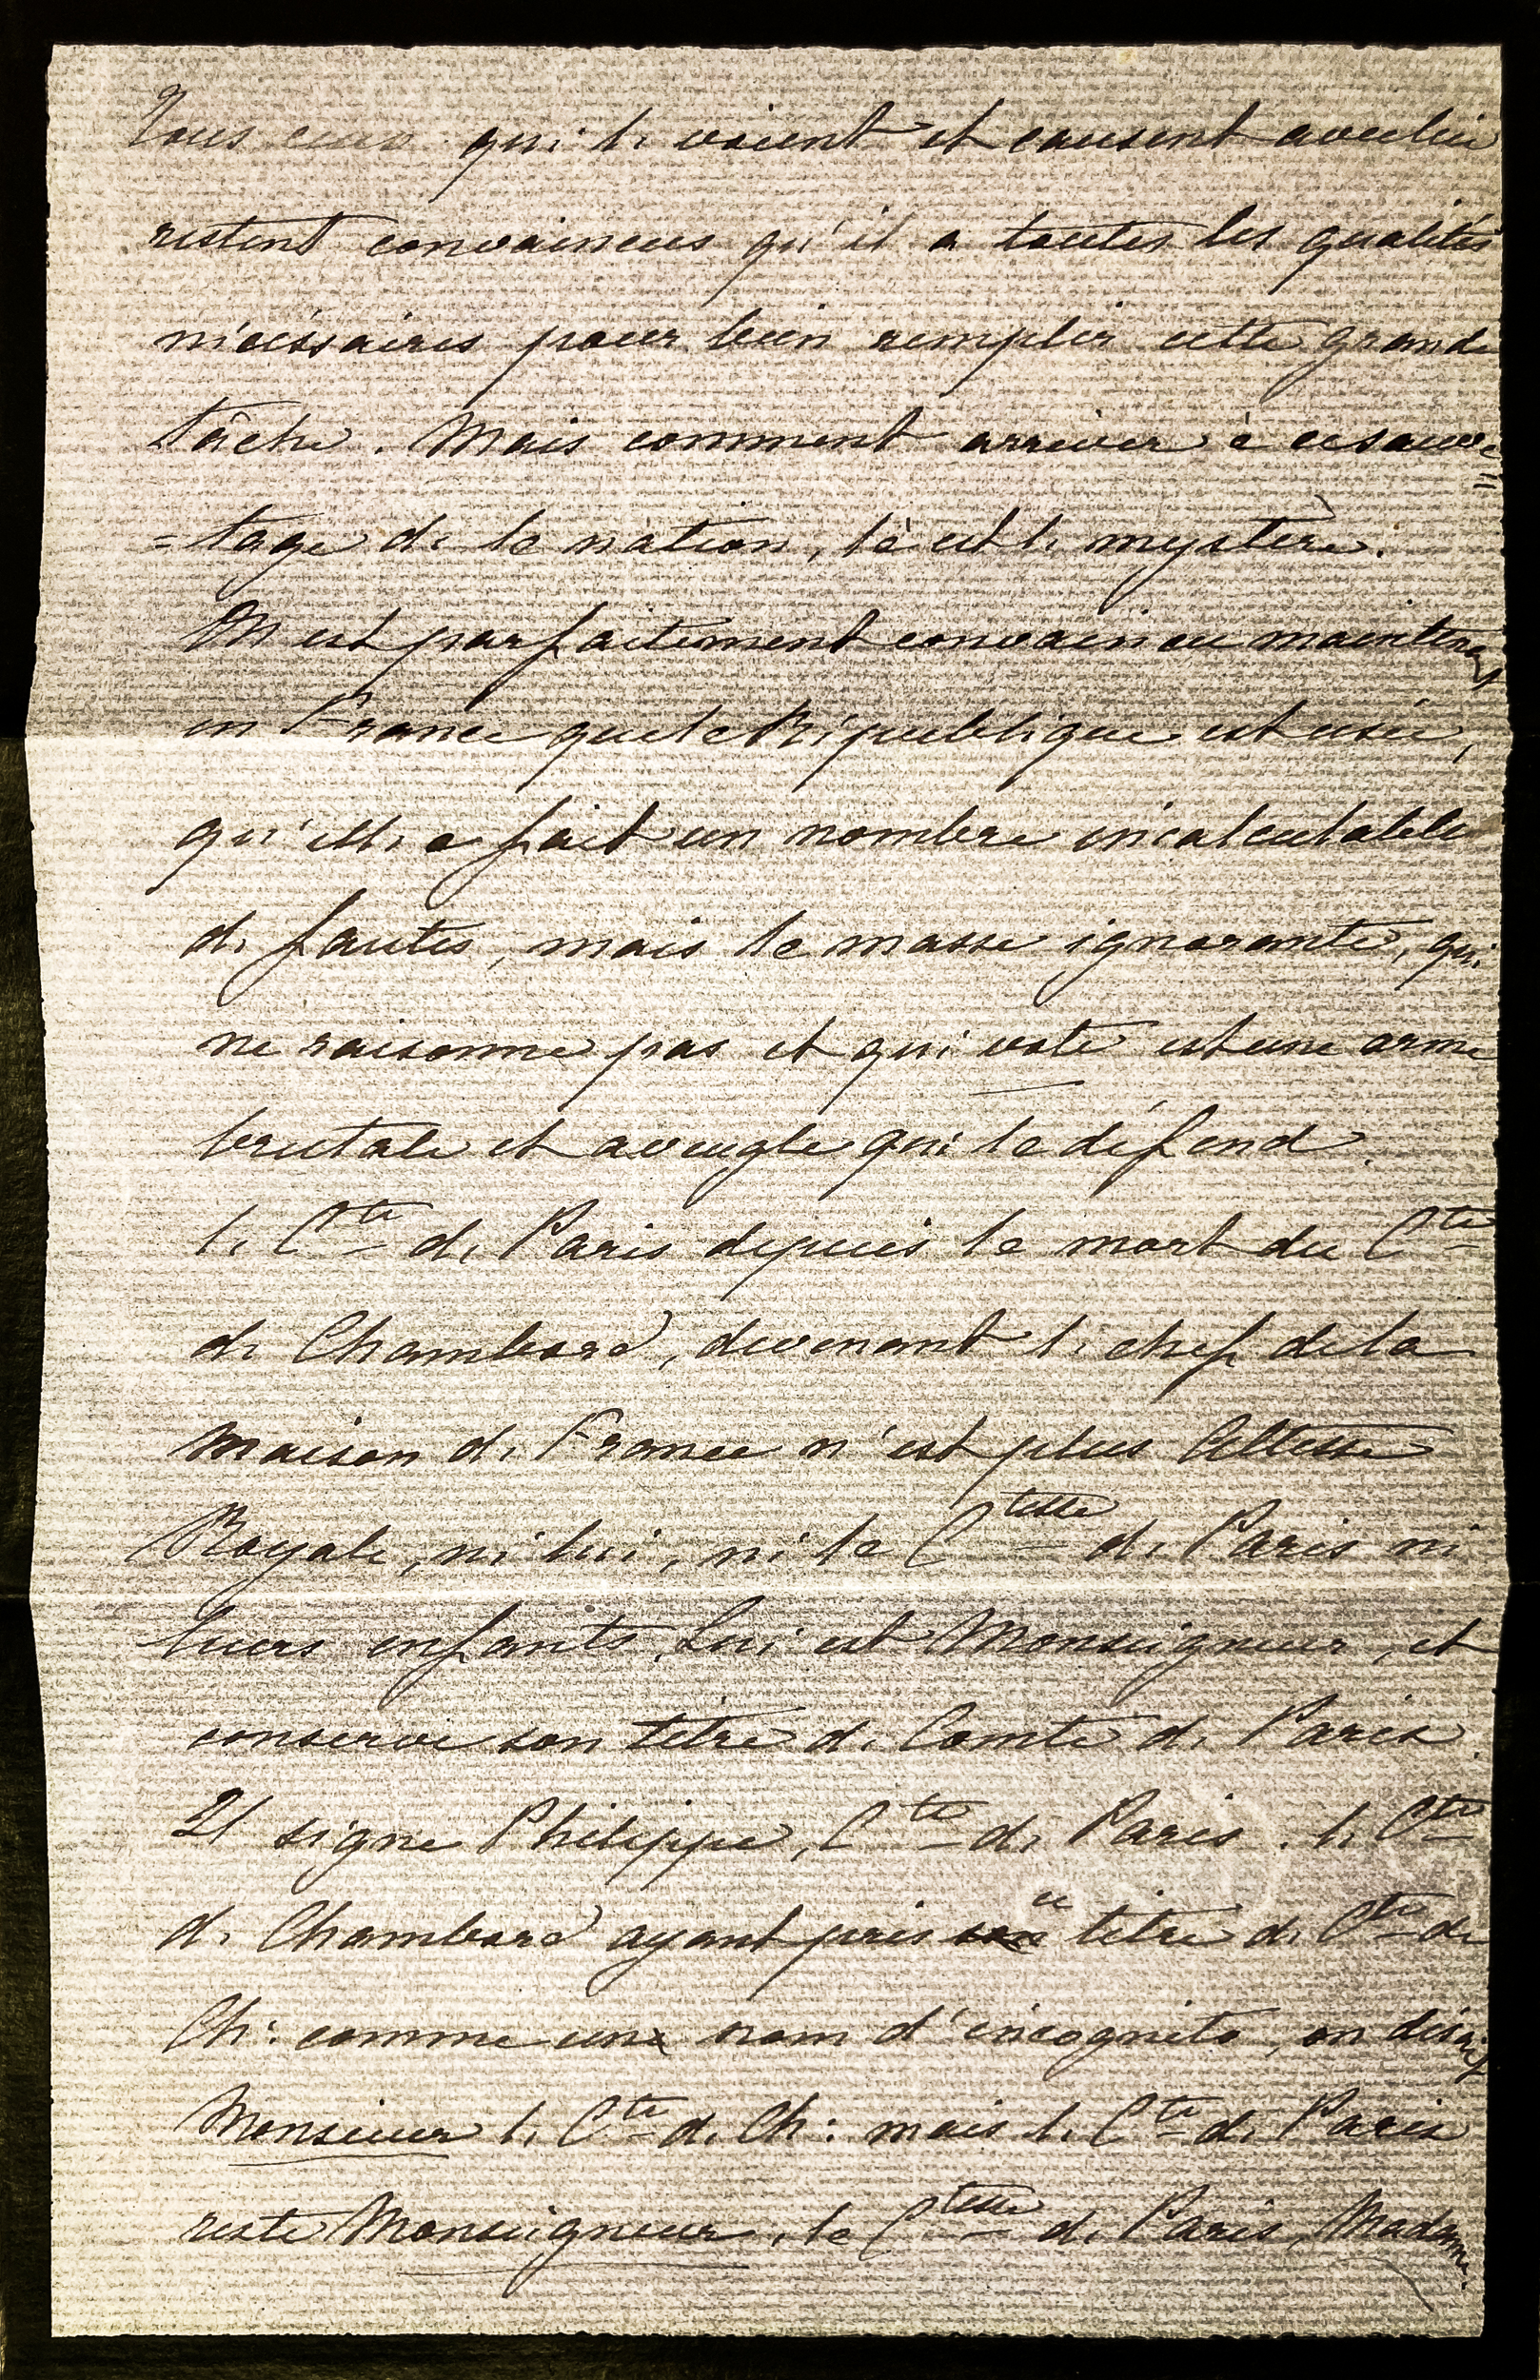 Tous ceux qui le voient et causent avec lui
restent convaincus qu'il a toutes les qualités
nécéssaires pour bien remplir cette grande
tâche. Mais comment arriver à ce sauve=
=tage de la nation, là est le mystère.
On est parfaitement convaincu maintenant
en France que la République est usée,
qu'elle a fait un nombre incalculable
de fautes, mais la masse ignorante, qui
ne raisonne pas et qui vote est une arme
brutale et aveugle qui la défend.
le Cte de Paris depuis la mort du Cte
de Chambord, devenant le chef de la
maison de France n'est plus Altesse
Royale, ni lui, ni la Ctesse de Paris ni
leurs enfants. Lui est Monseigneur, et
conserve son titre de Comte de Paris.
Il signe Philippe, Cte de Paris. le Cte
de Chambord ayant pris son ce titre de Cte de
Ch: comme un nom d'incognito, on disait
Monsieur le Cte de Ch: mais le Cte de Paris
reste Monseigneur, la Ctesse de Paris, Madame.